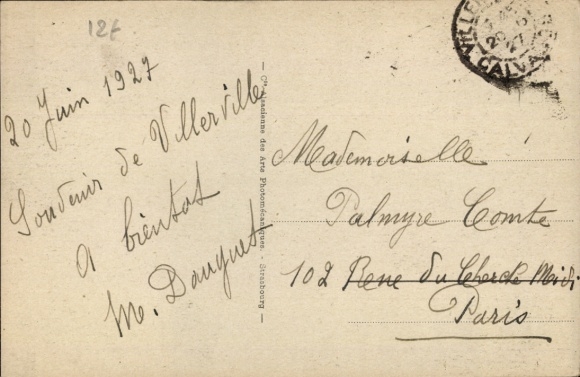 12f
20 Juin 1927
Souvenir de Villerville
A bientot
M. Dauguet
— Cie Alsacienne des Arts Photomécaniques. - Strasbourg —
CALVADOS
Mademoiselle
Palmyre Comte
102 Rue du Cherche Midi
Paris